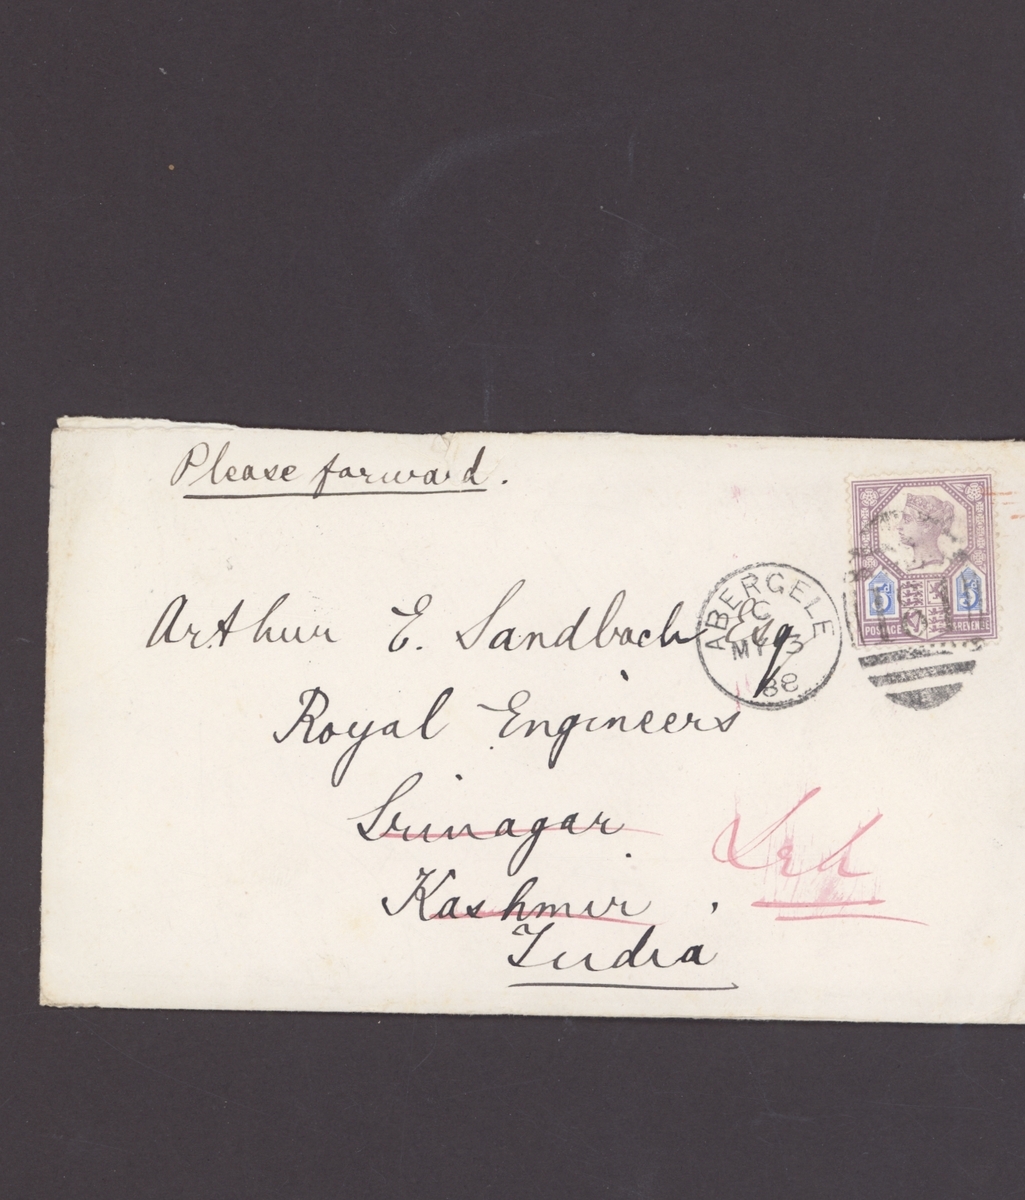 Please forward.
Arthur E. Sandbach Esq
Royal Engineers
Srinagar
Kashmir,
India
Leh
ABERGELE
C
MY 3
88
5d 5d
POSTAGE & REVENUE